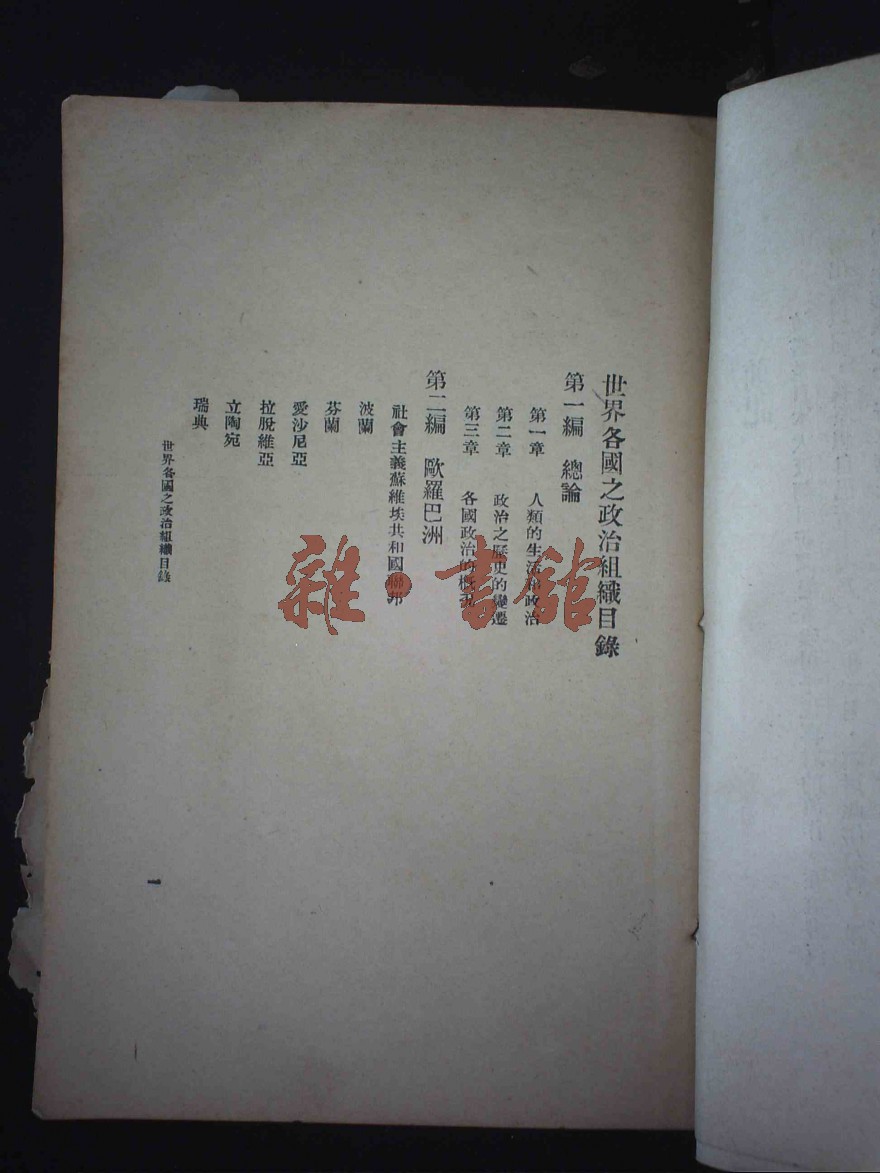 世界各國之政治組織目錄
第一編 總論
第一章 人類的生活與政治
第二章 政治之歷史的變遷
第三章 各國政治的概說
第二編 歐羅巴洲
社會主義蘇維埃共和國聯邦
波蘭
芬蘭
愛沙尼亞
拉脫維亞
立陶宛
瑞典
世界各國之政治組織目錄
一
雜·書館